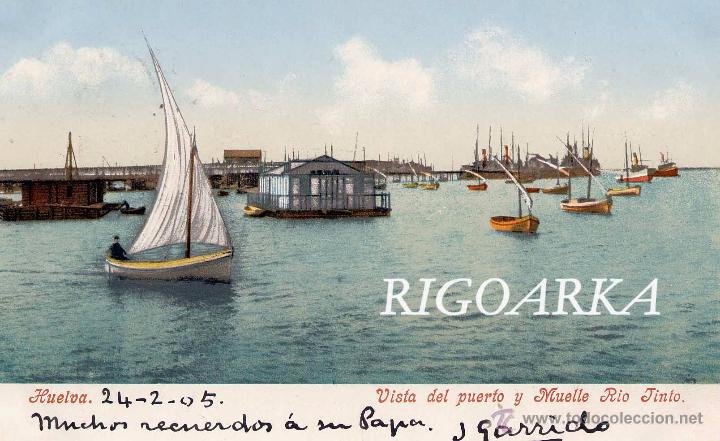 RIGOARKA
Huelva. 24-2-05. Vista del puerto y Muelle Rio Tinto.
Muchos recuerdos á su Papa. J Garrido
www.todocoleccion.net